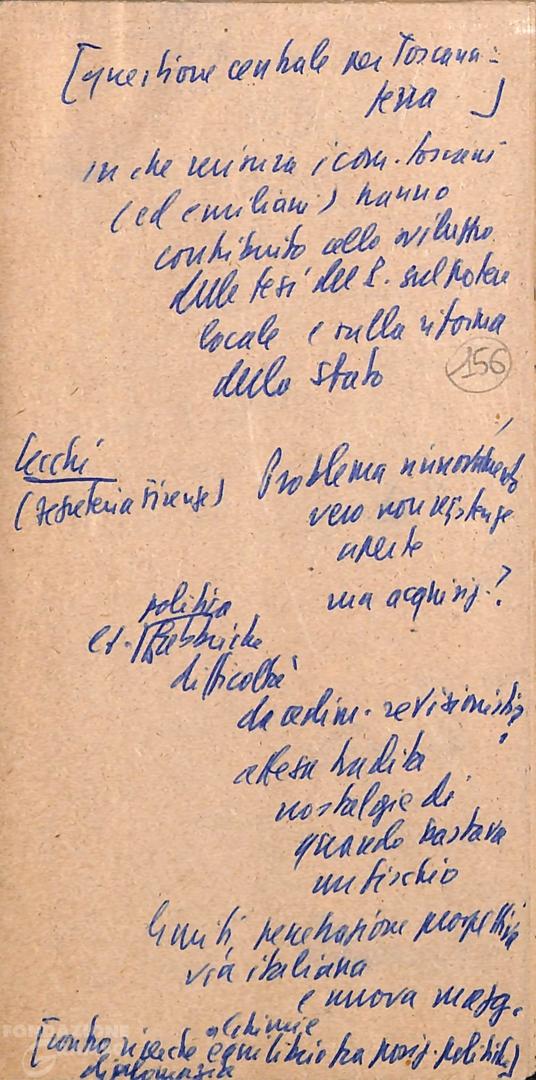 [questione centrale per Toscana:
terra ]
in che misura i com. toscani
(ed emiliani) hanno
contribuito allo sviluppo
delle tesi del P. sul potere
locale e sulla riforma
dello Stato
156
Cecchi
(segreteria Firenze)
Problema rinnovamento
vero non resistenze
aperte
ma acquisiz.?
politica
es. fabbriche
difficoltà
da cedim. revisionistici?
attesa tradita
nostalgie di
quando bastava
un fischio
limiti penetrazione prospettiva
via italiana
e nuova magg.
FONDAZIONE
alchimie
[contro ricerche equilibrio tra posiz. politiche]
diplomazia